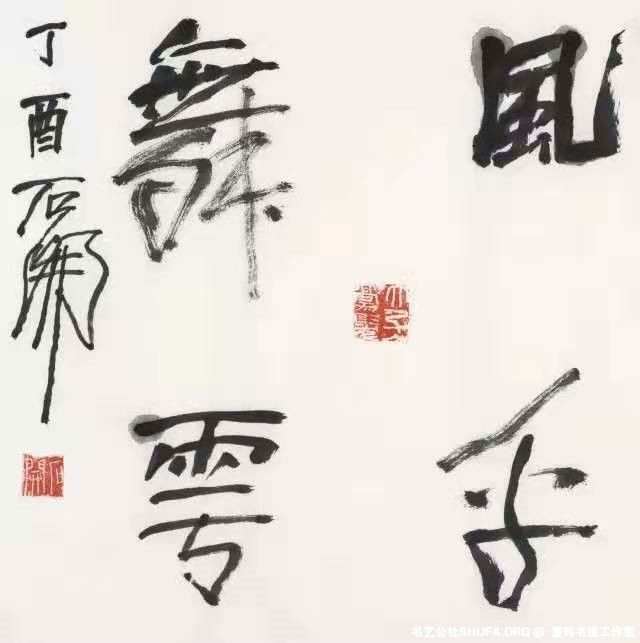 風乎
舞雩
丁酉石開
书艺公社SHUFA.ORG @
书法工作室